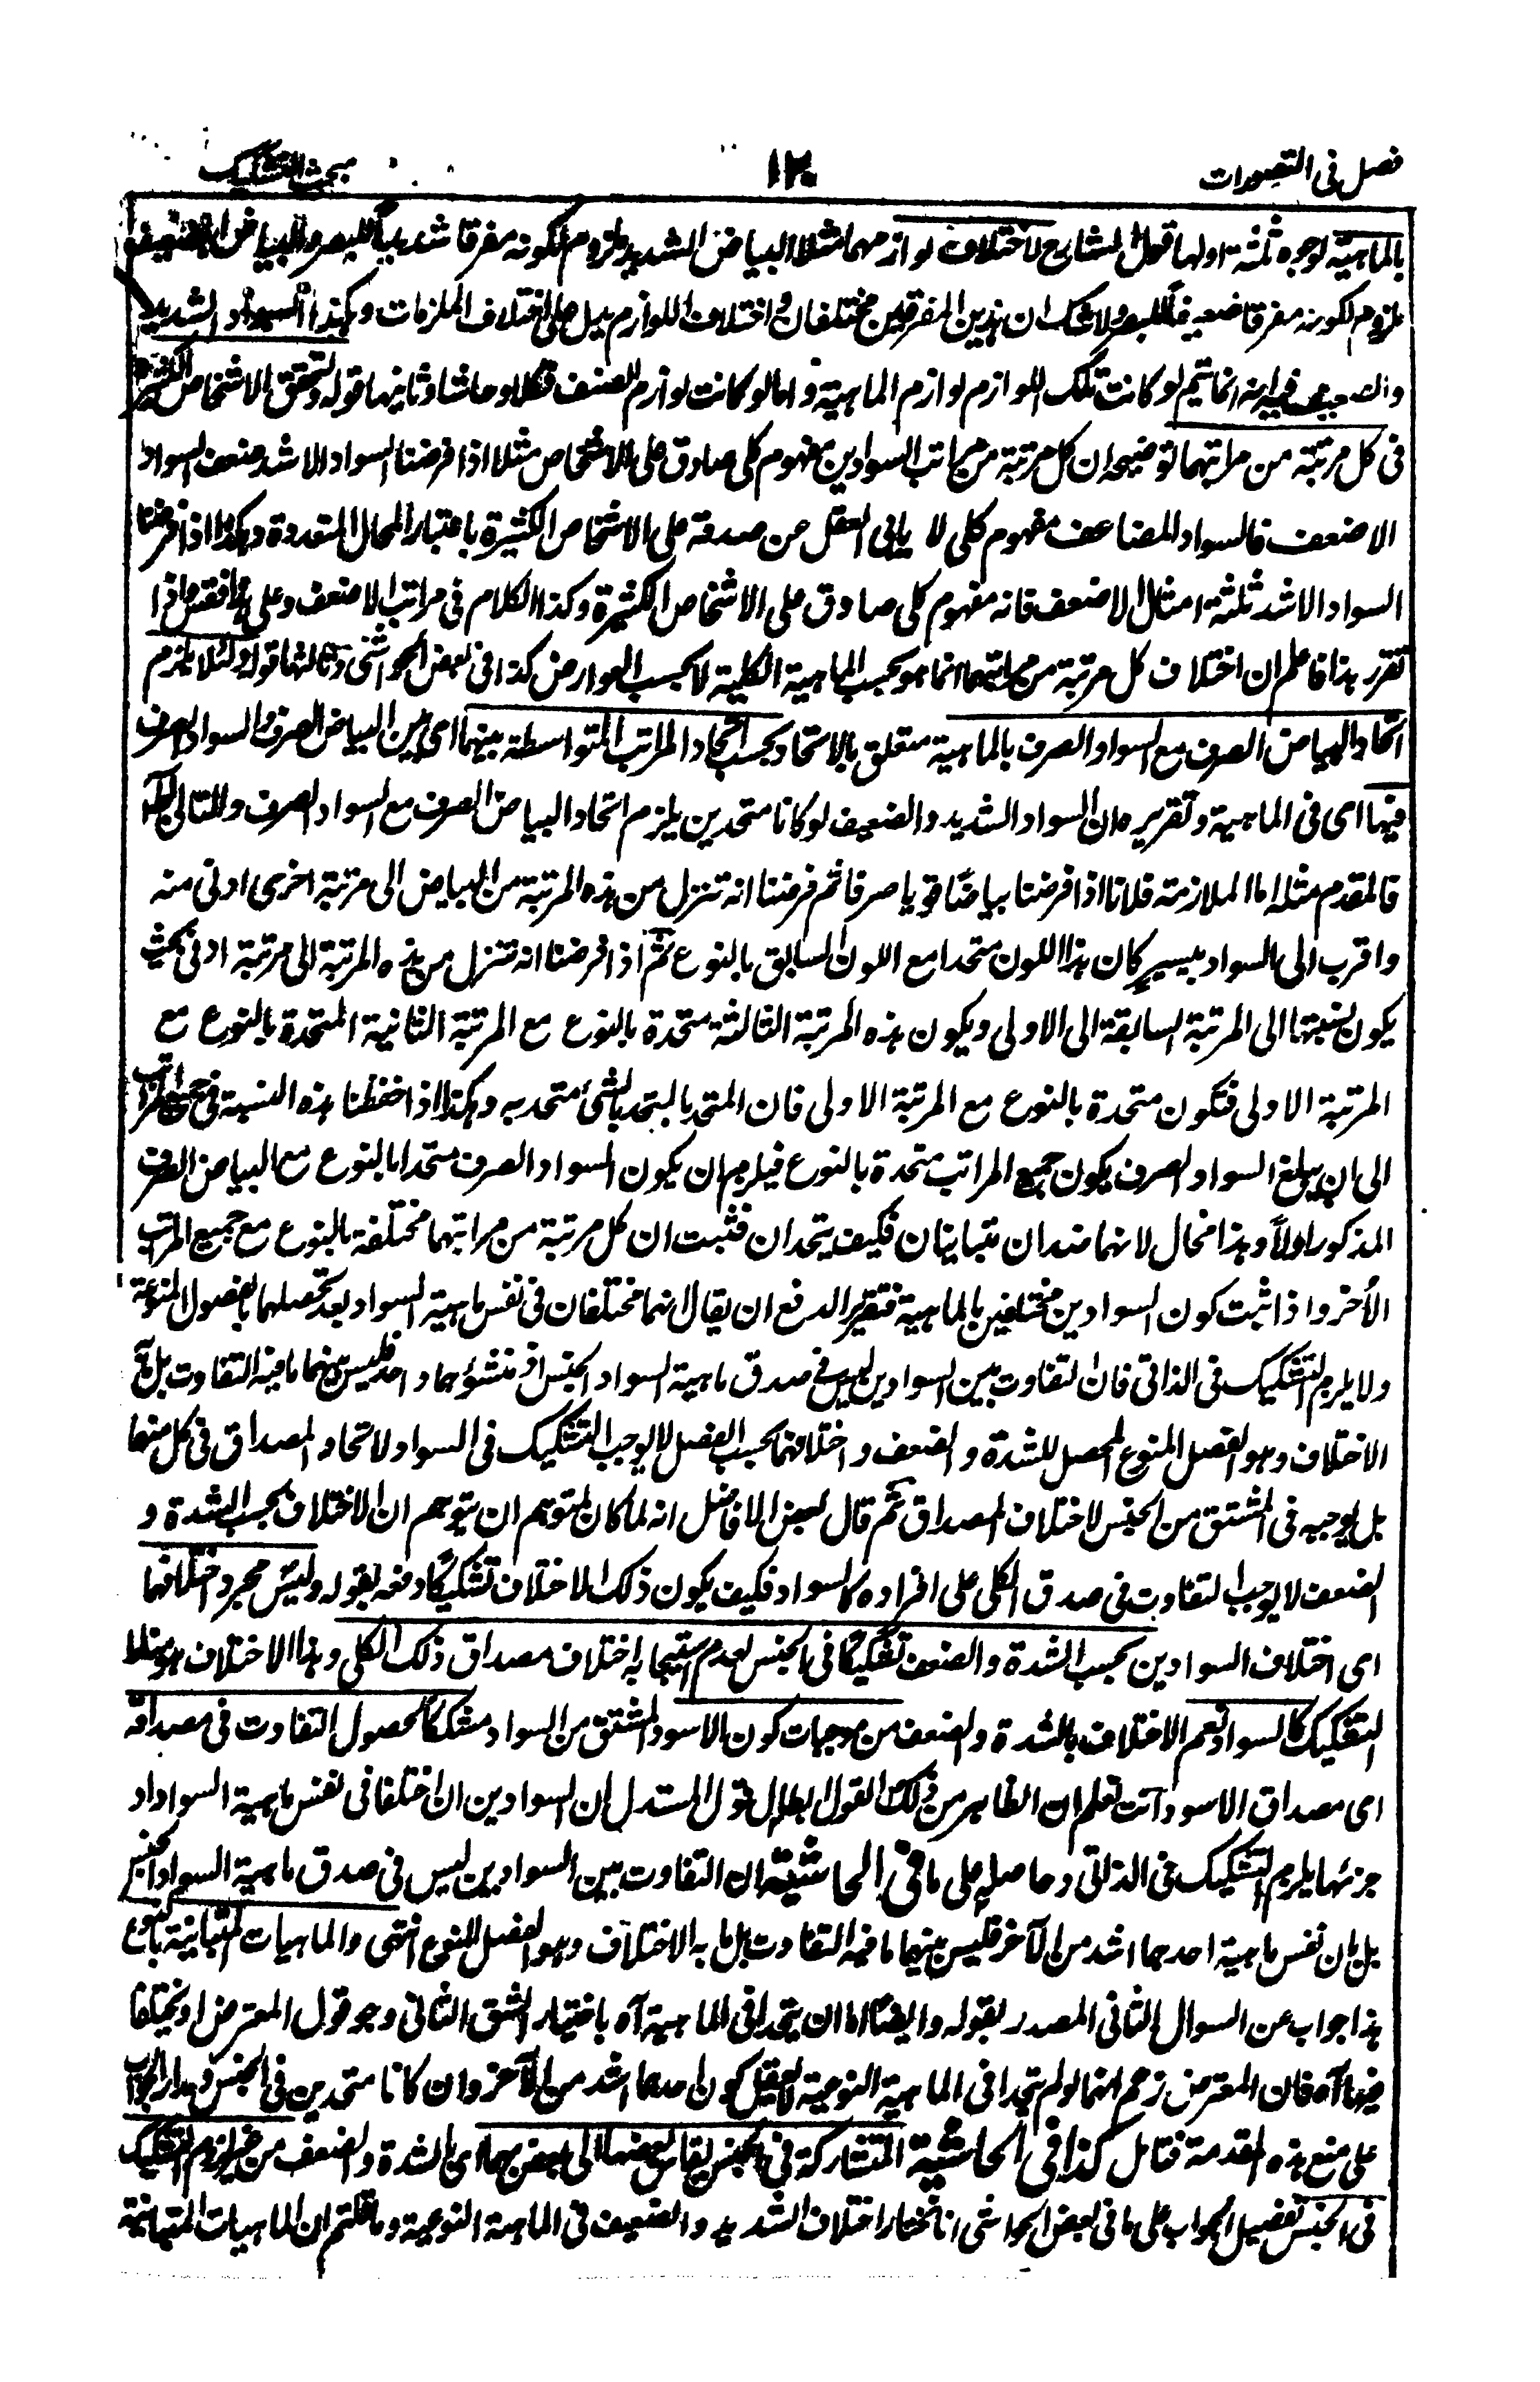 فصل فى التصورات
١٢٠
مبحث التشكيك
بالماهية لوجوه ثلثة اولها قول الشارع لاختلاف لوازمهما مثلا البياض الشديد ملزوم لكونه مفرقا شديدا للبصر والبياض الضعيف
ملزوم لكونه مفرقا ضعيفا للبصر ولا شك ان هذين المفرقين مختلفان واختلاف اللوازم يدل على اختلاف الملزمات وكذا السواد الشديد
والضعيف فيه انه انما يتم لو كانت تلك اللوازم لوازم الماهية واما لو كانت لوازم للصنف فكلا وحاشا وثانيها قوله ولتحقق الاشخاص الكثيرة
فى كل مرتبة من مراتبهما توضيحه ان كل مرتبة من مراتب السوادين مفهوم كلى صادق على الاشخاص مثلا اذا فرضنا السواد الاشد ضعف السواد
الاضعف فالسواد المضاعف مفهوم كلى لا يابى العقل عن صدقه على الاشخاص الكثيرة باعتبار المحال المتعددة وهكذا اذا فرضنا
السواد الاشد ثلثة امثال الاضعف فانه مفهوم كلى صادق على الاشخاص الكثيرة وكذا الكلام فى مراتب الاضعف وعلى هذا فقس واذا
تقرر هذا فاعلم ان اختلاف كل مرتبة من مراتبهما انما هو بحسب الماهية الكلية لا بحسب العوارض كذا فى بعض الحواشى وثالثها قوله ولئلا يلزم
اتحاد البياض الصرف مع السواد الصرف بالماهية متعلق بالاتحاد بحسب اتحاد المراتب المتواسطة بينهما اى بين البياض الصرف والسواد الصرف
فيها اى فى الماهية وتقريره ان السواد الشديد والضعيف لو كانا متحدين يلزم اتحاد البياض الصرف مع السواد الصرف والتالى باطل
فالمقدم مثله اما الملازمة فلانا اذا فرضنا بياضا قويا صرفا ثم فرضنا انه تنزل من هذه المرتبة من البياض الى مرتبة اخرى ادنى منه
واقرب الى السواد بيسير كان هذا اللون متحدا مع اللون السابق بالنوع ثم اذا فرضنا انه تنزل من هذه المرتبة الى مرتبة ادنى بحيث
يكون نسبتها الى المرتبة السابقة الى الاولى ويكون هذه المرتبة الثالثة متحدة بالنوع مع المرتبة الثانية المتحدة بالنوع مع
المرتبة الاولى فتكون متحدة بالنوع مع المرتبة الاولى فان المتحد بالمتحد بالشئ متحد به وهكذا اذا حفظنا هذه النسبة فى جميع المراتب
الى ان يبلغ السواد الصرف يكون جميع المراتب متحدة بالنوع فيلزم ان يكون السواد الصرف متحدا بالنوع مع البياض الصرف
المذكور اولاً وهذا محال لانهما ضدان متباينان فكيف يتحدان فثبت ان كل مرتبة من مراتبهما مختلفة بالنوع مع جميع المراتب
الأخر واذا ثبت كون السوادين مختلفين بالماهية فتقرير الدفع ان يقال انهما مختلفان فى نفس ماهية السواد بعد تحصلهما بالفصول المنوعة
ولا يلزم التشكيك فى الذاتى فان التفاوت بين السوادين ليس فى صدق ماهية السواد الجنس اذ منشؤهما واحد فليس بينهما ما فيه التفاوت بل ما به
الاختلاف وهو الفصل المنوع المحصل للشدة والضعف واختلافهما بحسب الفصل لا يوجب التشكيك فى السواد لاتحاد المصداق فى كل منهما
بل يوجبه فى المشتق من الجنس لاختلاف المصداق ثم قال بعض الافاضل انه لما كان لمتوهم ان يتوهم ان الاختلاف بحسب الشدة و
الضعف لا يوجب التفاوت فى صدق الكلى على افراده كالسواد فكيف يكون ذلك الاختلاف تشكيكا دفعه بقوله وليس مجرد اختلافهما
اى اختلاف السوادين بحسب الشدة والضعف تشكيكا فى الجنس لعدم استيجابه اختلاف مصداق ذلك الكلى وهذا الاختلاف هو مناط
التشكيك كالسواد نعم الاختلاف بالشدة والضعف من موجبات كون الاسود المشتق من السواد مشككا لحصول التفاوت فى مصداقه
اى مصداق الاسود انت تعلم ان الظاهر من ذلك القول ابطال قول المستدل ان السوادين ان اختلفا فى نفس ماهية السواد او
جزئها يلزم التشكيك فى الذاتى وحاصله على ما فى الحاشية ان التفاوت بين السوادين ليس فى صدق ماهية السواد الجنس
بل بان نفس ماهية احدهما اشد من الآخر فليس بينهما ما فيه التفاوت بل ما به الاختلاف وهو الفصل المنوع انتهى والماهيات المتباينة بالنوع
هذا جواب عن السوال الثانى المصدر بقوله وايضا اما ان يتحدا فى الماهية آه باختيار الشق الثانى وهو قول المعترض او يختلفا
فيها آه فان المعترض زعم انهما لو لم يتحدا فى الماهية النوعية لا يعقل كون احدهما اشد من الآخر وان كانا متحدين فى الجنس ومدار الجواب
على منع هذه المقدمة فتامل كذا فى الحاشية المتشاركة فى الجنس يقاس بعضها الى بعض بهما اى بالشدة والضعف من غير لزوم التشكيك
فى الجنس تفصيل الجواب على ما فى بعض الحواشى انا نختار اختلاف الشديد والضعيف فى الماهية النوعية وما قلتم ان الماهيات المتباينة